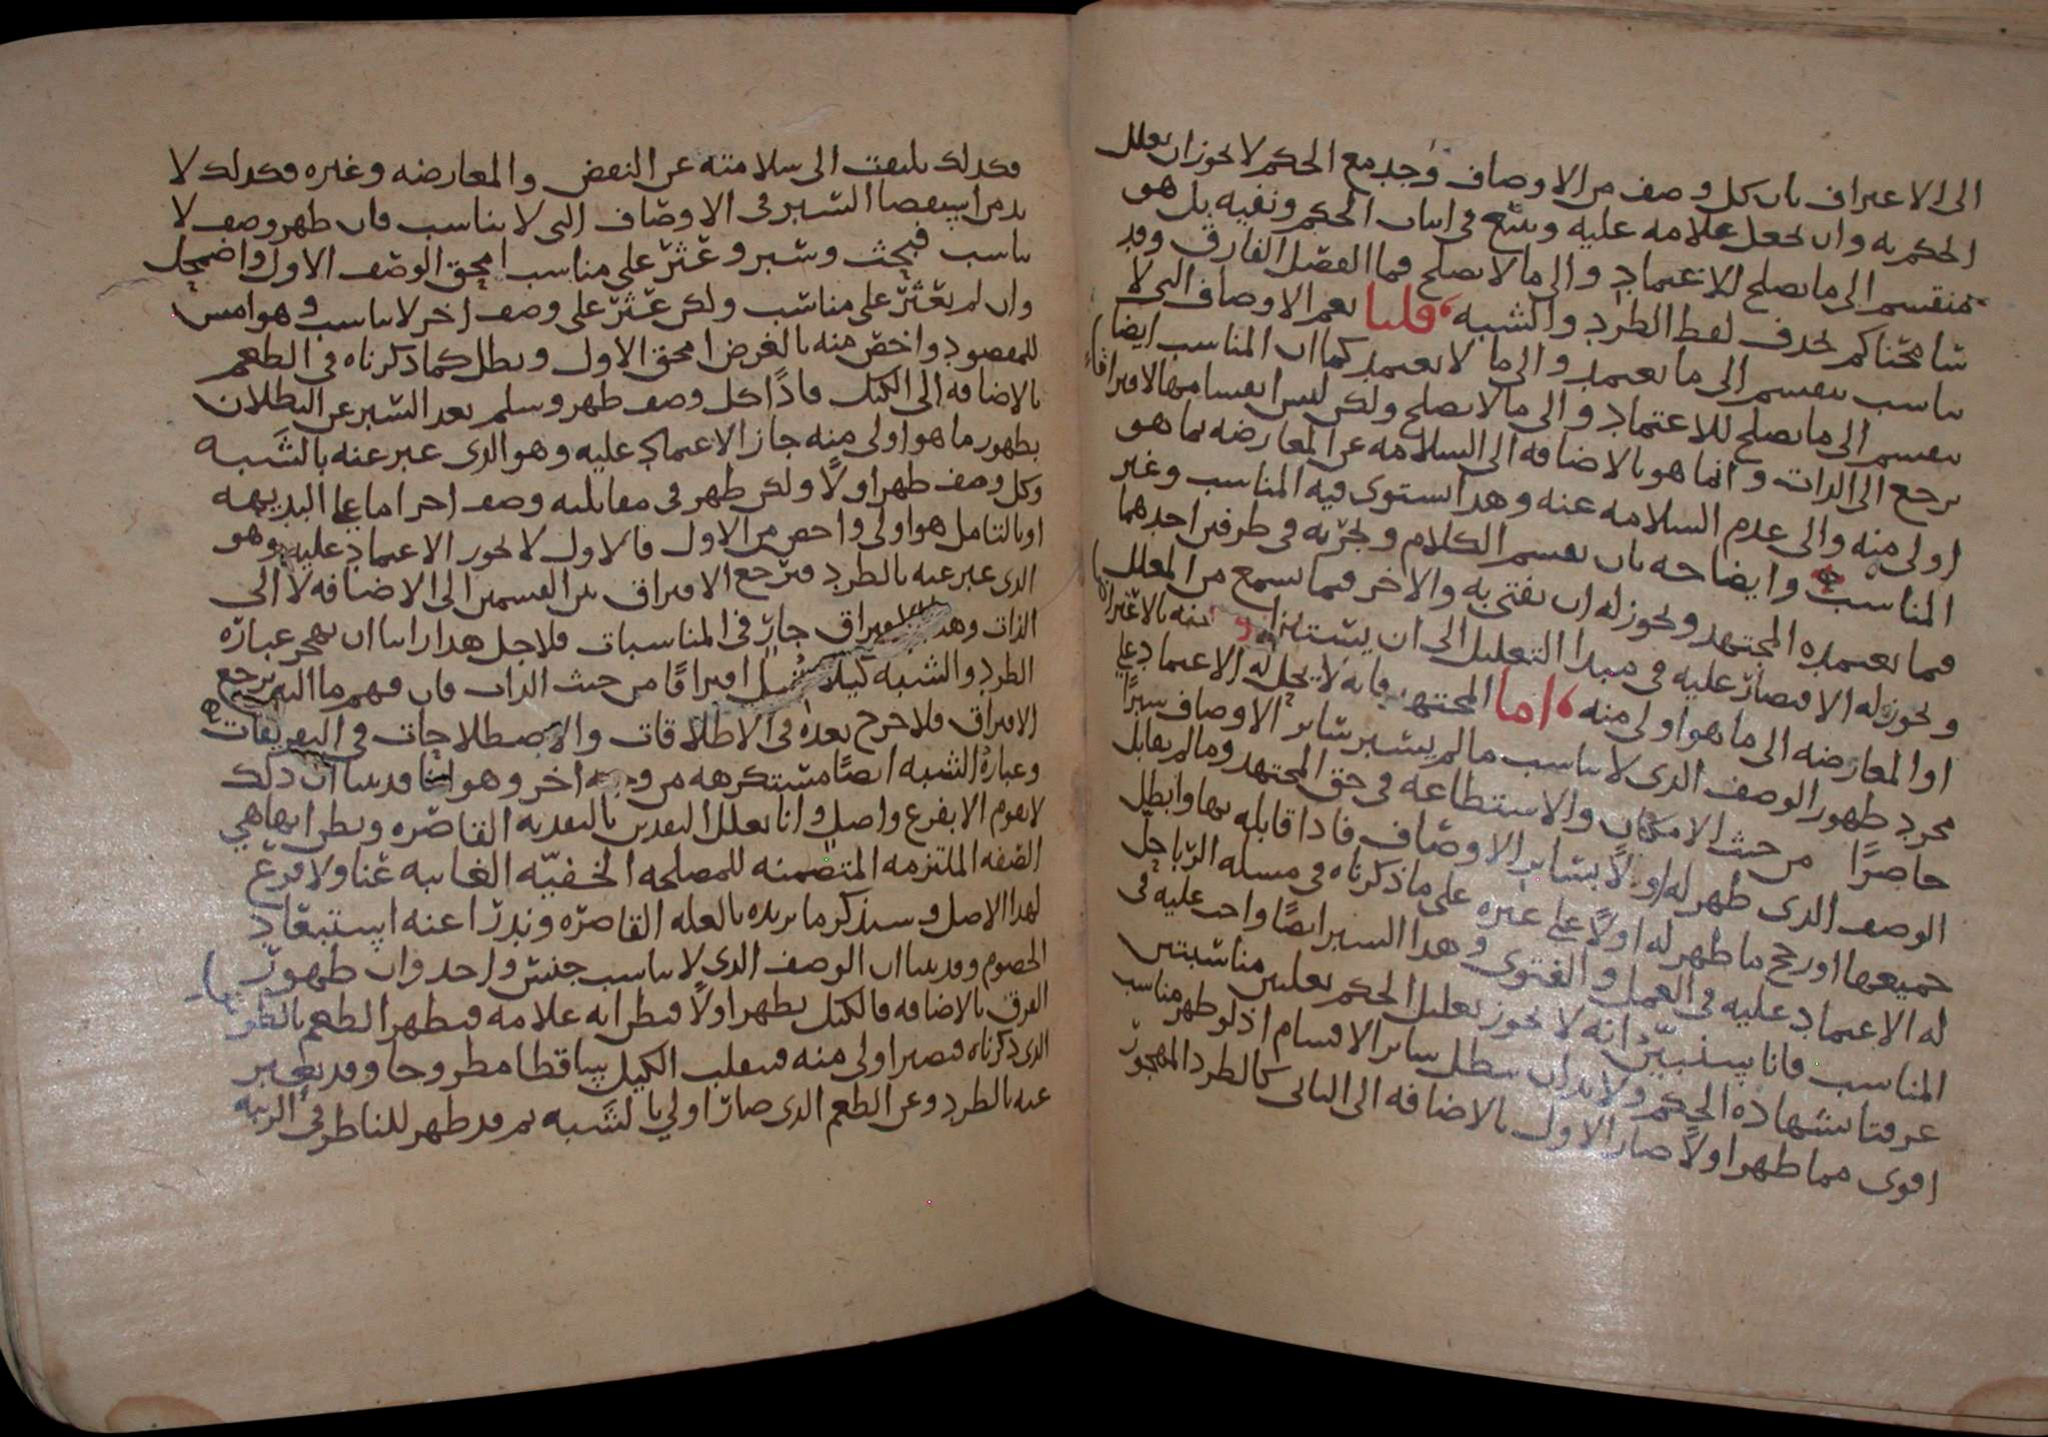 الى الاعتراف بان كل وصف من الاوصاف وجد مع الحكم لا يجوز ان يعلل
الحكم به وان يجعل علامه عليه ويتبع في اثبات الحكم ونفيه بل هو
منقسم الى ما يصلح للاعتماد والى ما لا يصلح فما الفصل الفارق وقد
سامحناكم بحذف لفظ الطرد والشبه قلنا نعم الاوصاف التي لا
تناسب تنقسم الى ما يعتمد والى ما لا يعتمد كما ان المناسب ايضا
ينقسم الى ما يصلح للاعتماد والى ما لا يصلح ولكن ليس انقسامها لافتراق
يرجع الى الذات وانما هو بالاضافه الى السلامه عن المعارضه بما هو
اولى منه والى عدم السلامه عنه وهذا يستوى فيه المناسب وغير
المناسب وايضاحه بان نقسم الكلام ونجريه في طرفين احدهما
فيما يعتمده المجتهد ويجوز له ان يفتي به والاخر فيما يسمع من المعلل
ويجوز له الاقتصار عليه في مبدا التعليل الى ان بالاعتراض
او المعارضه الى ما هو اولى منه اما المجتهد فانه لا يحل له الاعتماد على
مجرد ظهور الوصف الذى لا يناسب ما لم يسبر ساير الاوصاف سبرًا
حاصرًا من حيث الامكان والاستطاعه في حق المجتهد وما لم يقابل
الوصف الذى ظهر له اولًا بساير الاوصاف فاذا قابله بها وابطل
جميعها او رجح ما ظهر له اولًا على غيره على ما ذكرناه في مسله الربا حل
له الاعتماد عليه في العمل والفتوى وهذا السبر ايضًا واجب عليه في
المناسب فانا سنبين انه لا يجوز تعليل الحكم بعلتين مناسبتين
عرفتا بشهاده الحكم ولا بد ان يبطل ساير الاقسام اذ لو ظهر مناسب
اقوى مما ظهر اولًا صار الاول بالاضافه الى الثاني كالطرد المهجور
فكذلك يلتفت الى سلامته عن النقض والمعارضه وغيره فكذلك لا
بد من استقصا السبر في الاوصاف التي لا تناسب فان ظهر وصف لا
يناسب فبحث وسبر وعثر على مناسب امحق الوصف الاول واضمحل
وان لم يعثر على مناسب ولكن عثر على وصف اخر لا يناسب وهو امس
للمقصود واخص منه بالغرض امحق الاول وبطل كما ذكرناه في الطعم
بالاضافه الى الكيل فاذًا كل وصف ظهر وسلم بعد السبر عن البطلان
بظهور ما هو اولى منه جاز الاعتماد عليه وهو الذى عبر عنه بالشَّبه
وكل وصف ظهر اولًا ولكن ظهر في مقابلته وصف اخر اما على البديهه
او بالتامل هو اولى واخص من الاول فالاول لا يجوز الاعتماد عليه وهو
الذى عبر عنه بالطرد فيرجع الافتراق بين القسمين الى الاضافه لا الى
الذات وهذا الافتراق جارٍ في المناسبات فلاجل هذا راينا ان نهجر عباره
الطرد والشبه كيلا افتراقًا من حيث الذات فان فهم ما اليه يرجع
الافتراق فلا حرج بعده في الاطلاقات والاصطلاحات في التعريفات
وعباره الشبه ايضًا مستكرهه من وجه اخر وهو انا قد بينا ان ذلك
لا يقوم الا بفرع واصل وانا نعلل النقدين بالنقديه القاصره ونظن انها هي
الصفه الملتزمه المتضمنه للمصلحه الخفيّه الغايبه عنا ولا فرع
لهذا الاصل وسنذكر ما نريده بالعله القاصره وندرا عنه استبعاد
الخصوم وقد بينا ان الوصف الذى لا يناسب جنس واحد وان ظهور
الفرق بالاضافه فالكيل يظهر اولًا فيظن انه علامه فيظهر الطعم بالطريق
الذى ذكرناه فيصير اولى منه فينقلب الكيل ساقطا مطروحا وقد يعبر
عنه بالطرد وعن الطعم الذى صار اولى بالشَّبه ثم قد ظهر للناظر في الرتبه